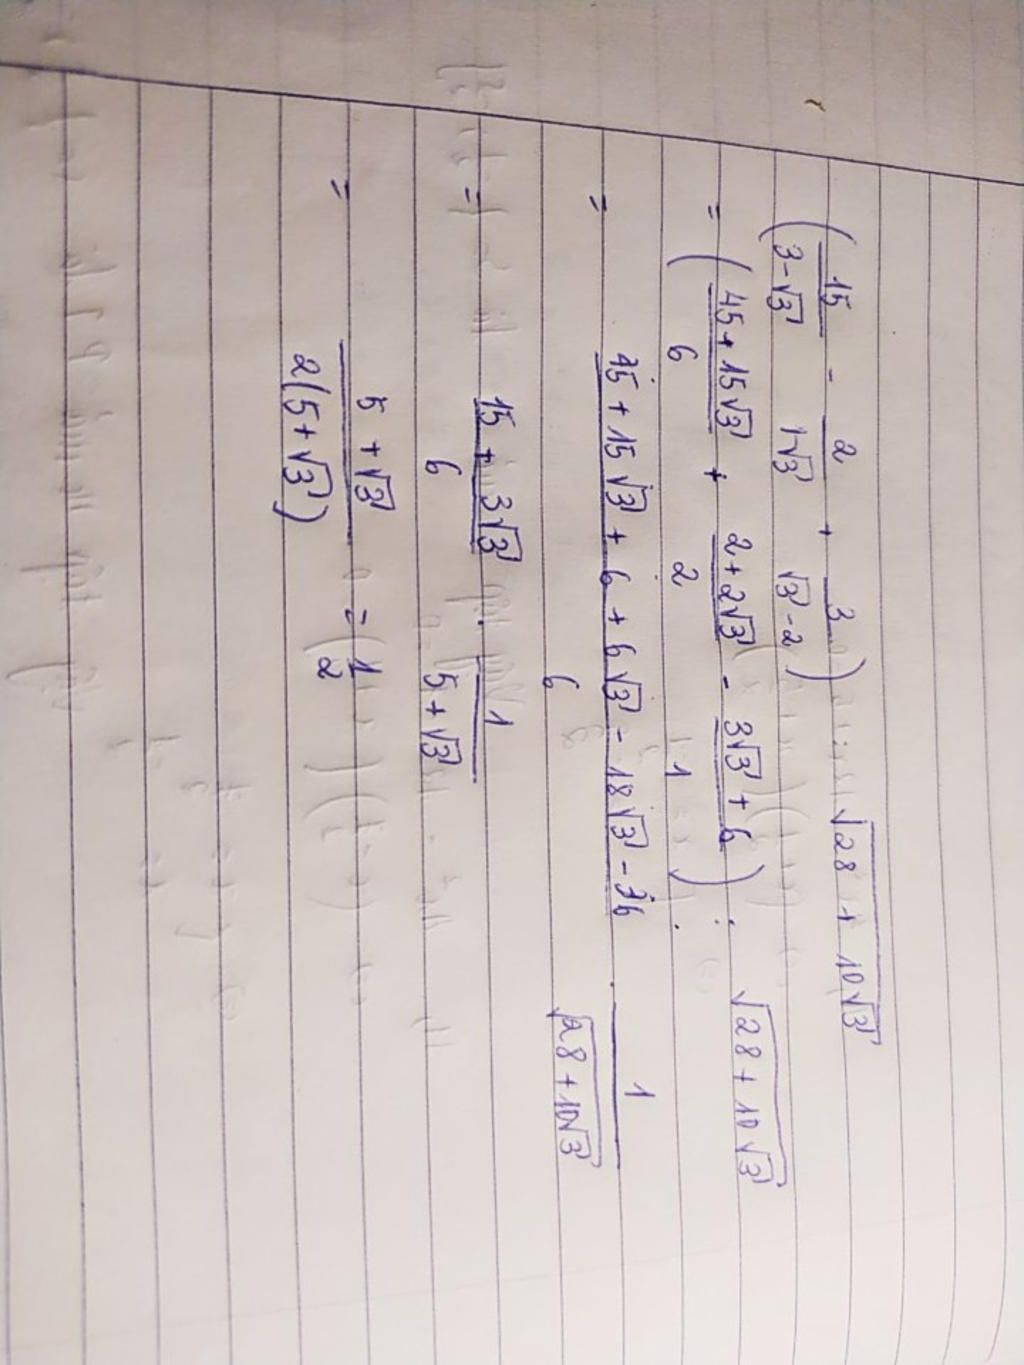 ( 15/(3-√3) - 2/(1-√3) + 3/(√3-2) ) : √(28 + 10√3)
= ( (45+15√3)/6 + (2+2√3)/2 - (3√3+6)/1 ) : √(28+10√3)
= (45+15√3+6+6√3-18√3-36)/6 . 1/√(28+10√3)
= (15+3√3)/6 . 1/(5+√3)
= (5+√3)/(2(5+√3)) = 1/2